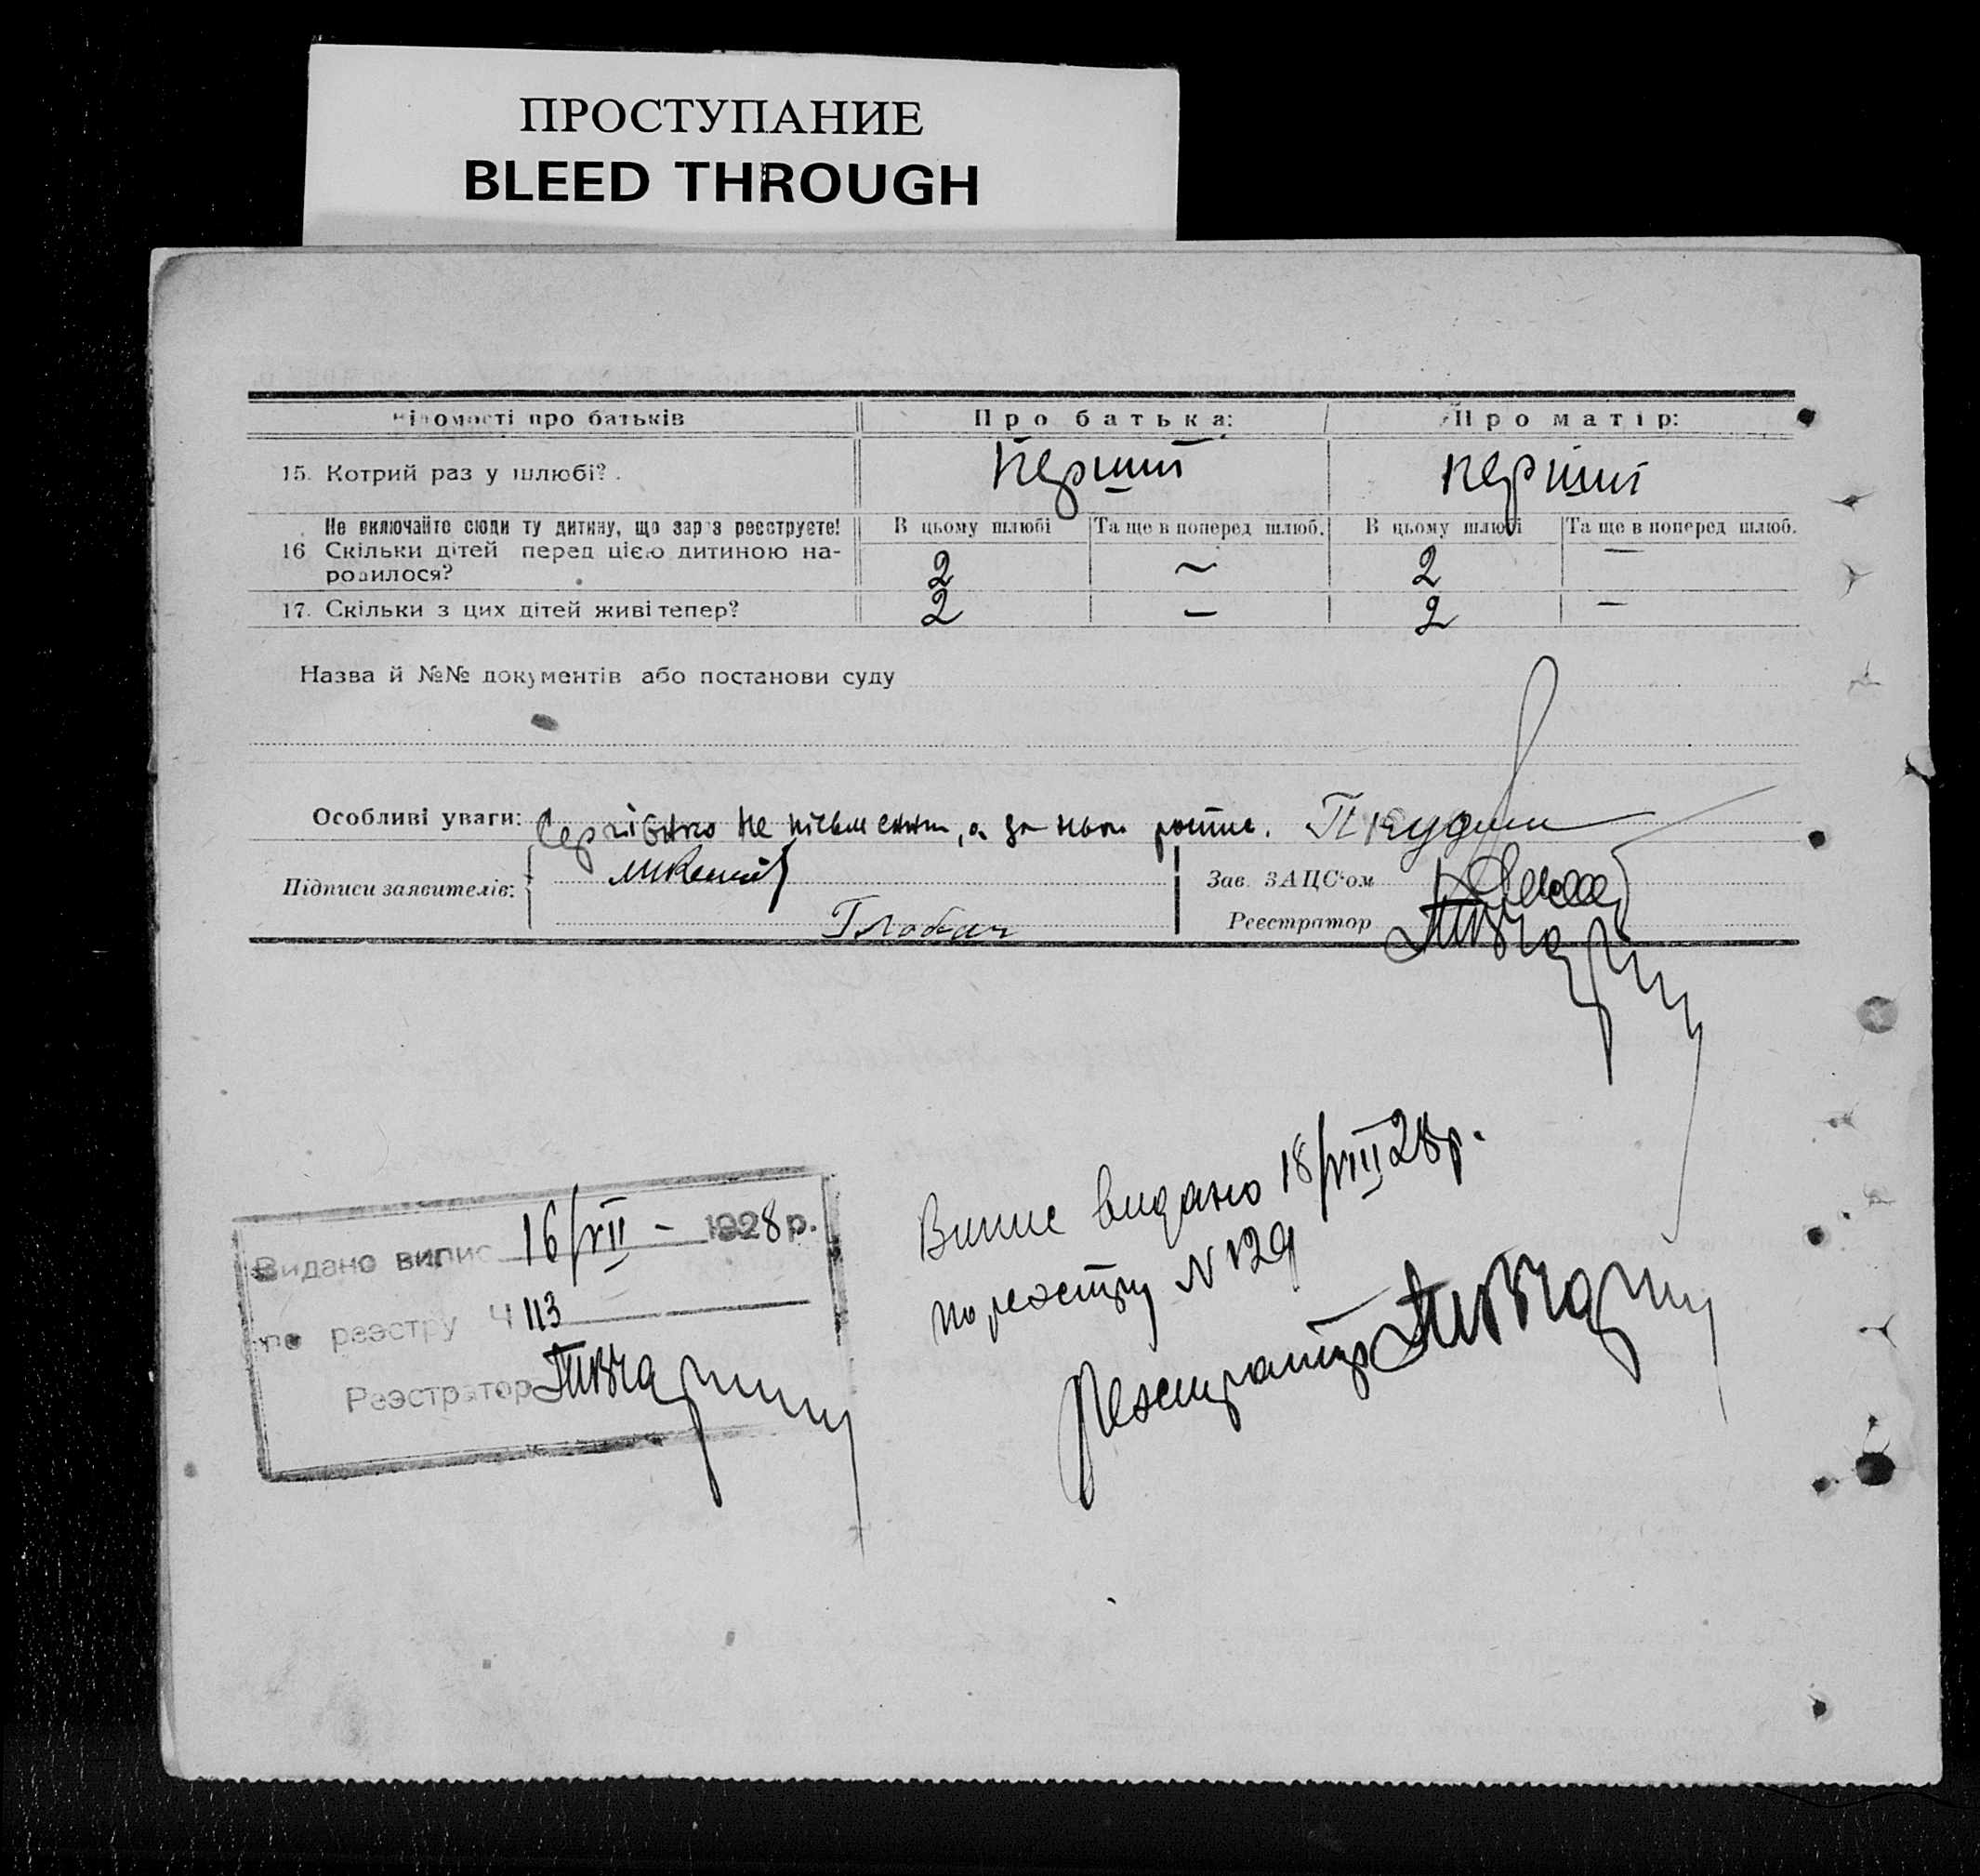 ПРОСТУПАНИЕ
BLEED THROUGH
Відомості про батьків Про батька: Про матір:
15. Котрий раз у шлюбі? Перший Перший
Не включайте сюди ту дитину, що зараз реєструєте! В цьому шлюбі Та ще в поперед шлюб. В цьому шлюбі Та ще в поперед шлюб.
16 Скільки дітей перед цією дитиною на-
родилося? 2 ~ 2 —
17. Скільки з цих дітей живі тепер? 2 — 2 —
Назва й №№ документів або постанови суду
Особливі уваги: не письменни, а за
Підписи заявителів:
Зав. ЗАЦС'ом
Реєстратор
Видано випис 16/VII – 1928 р.
по реэстру Ч 113
Реэстратор
Випис видано 18/VIII 28р.
по реэстру N 129
Реэстратор